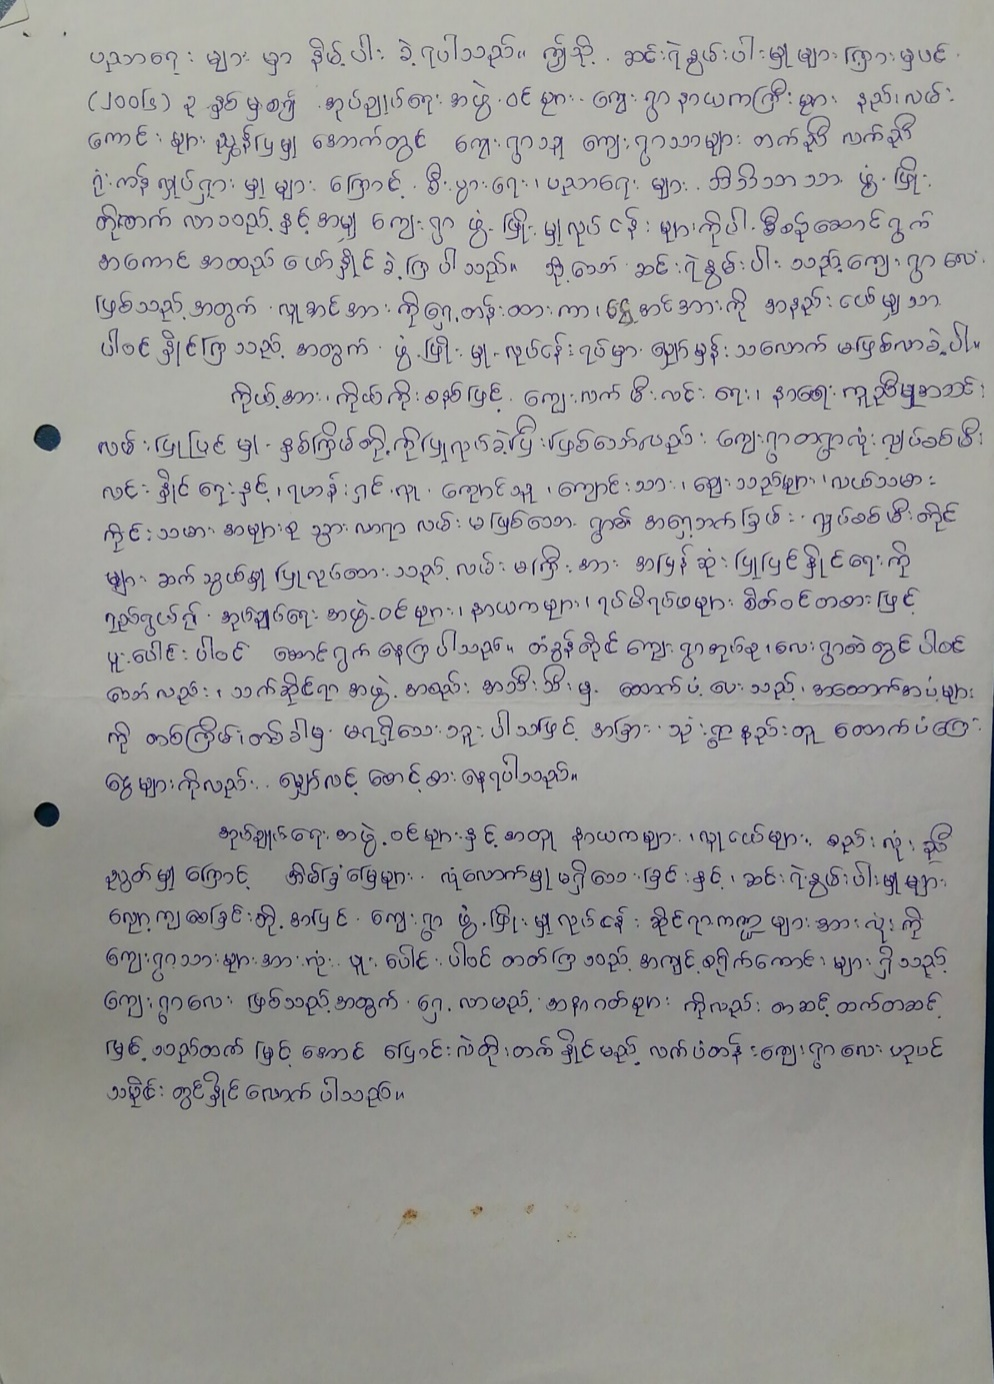 ပညာရေး များ မှာ နိမ့်ပါး ခဲ့ရပါသည်။ ဤသို့ ဆင်းရဲနွမ်းပါးမှုများကြားမှပင်
(၂၀၀၆) ခုနှစ်မှစ၍ အုပ်ချုပ်ရေးအဖွဲ့ဝင်များ ကျေးရွာနာယကကြီးများ နည်းလမ်း
ကောင်းများ ညွှန်ပြမှု အောက်တွင် ကျေးရွာသူ ကျေးရွာသားများ တက်ညီ လက်ညီ
ရုံးကန်လှုပ်ရှားမှုများ ကြောင့် စီးပွားရေး၊ ပညာရေးများ အသီးသီး ဖွံ့ဖြိုး
တိုးတက် လာသည်နှင့်အမျှ ကျေးရွာ ဖွံ့ဖြိုးမှုလုပ်ငန်းများကိုပါ စီစဉ်ဆောင်ရွက်
အကောင်အထည်ဖော်နိုင်ခဲ့ကြပါသည်။ သို့သော် ဆင်းရဲနွမ်းပါးသည့်ကျေးရွာလေး
ဖြစ်သည့်အတွက် လူအင်အားကိုရှေ့တန်းထားကာ ငွေအင်အားကို အနည်းငယ်မျှသာ
ပါဝင်နိုင်ကြသည့်အတွက် ဖွံ့ဖြိုးမှုလုပ်ငန်းရပ်မှာ မျှော်မှန်းသလောက် မဖြစ်လာခဲ့ပါ။
ကိုယ့်အား၊ ကိုယ်ကိုးစနစ်ဖြင့် ကျေးလက်မီးလင်းရေး၊ နာရေးကူညီမှုအသင်း၊
လမ်းပြုပြင်မှု နှစ်ကြိမ်တို့ကိုပြုလုပ်ခဲ့ပြီးဖြစ်သော်လည်း ကျေးရွာတရွာလုံး လျှပ်စစ်မီး
လင်းနိုင်ရေးနှင့်၊ ရဟန်းရှင်လူ ကျောင်းသူ၊ ကျောင်းသား၊ ဈေးသည်များ၊ လယ်သမား
ကိုင်းသမား အများစု သွားလာရာ လမ်းမဖြစ်သော ရွာ၏ အရှေ့ဘက်ခြမ်း လျှပ်စစ်မီးတိုင်
များ ဆက်သွယ်မှုပြုလုပ်ထားသည့် လမ်းမကြီးအား အမြန်ဆုံးပြုပြင်နိုင်ရေးကို
ရည်ရွယ်၍ အုပ်ချုပ်ရေးအဖွဲ့ဝင်များ၊ နာယကများ၊ ရပ်မိရပ်ဖများ စိတ်ဝင်တစားဖြင့်
ပူးပေါင်းပါဝင် ဆောင်ရွက်နေကြပါသည်။ တံခွန်တိုင်ကျေးရွာအုပ်စု၊ လေးရွာထဲတွင်ပါဝင်
သော်လည်း၊ သက်ဆိုင်ရာအဖွဲ့အစည်းအသီးသီးမှ ထောက်ပံ့ပေးသည့် အထောက်အပံ့များ
ကို တစ်ကြိမ်၊ တစ်ခါမှ မရရှိသေးသူးပါသဖြင့် အခြား သုံးရွာနည်းတူ ထောက်ပံ့ကြေး
ငွေများကိုလည်း မျှော်လင့်စောင့်စားနေရပါသည်။
အုပ်ချုပ်ရေးအဖွဲ့ဝင်များနှင့်အတူ နာယကများ၊ လူငယ်များ၊ စည်းလုံးညီ
ညွတ်မှုကြောင့် အိမ်ခြံမြေများ လုံလောက်မှုမရှိသေးခြင်းနှင့်၊ ဆင်းရဲနွမ်းပါးမှုများ
လျော့ကျစေခြင်းတို့အပြင် ကျေးရွာ ဖွံ့ဖြိုးမှုလုပ်ငန်းဆိုင်ရာကဏ္ဍများအားလုံးကို
ကျေးရွာသားများအားလုံး ပူးပေါင်းပါဝင်တတ်ကြသည့် အကျင့်စရိုက်ကောင်းများရှိသည့်
ကျေးရွာလေး ဖြစ်သည့်အတွက် ရှေ့လာမည့် အနာဂတ်များကိုလည်း တဆင့်ထက်တဆင့်
မြင့်သည်ထက် မြင့်အောင် ပြောင်းလဲတိုးတက်နိုင်မည့် လက်ပံတန်းကျေးရွာလေးဟုပင်
သမိုင်းတွင်နိုင်လောက်ပါသည်။